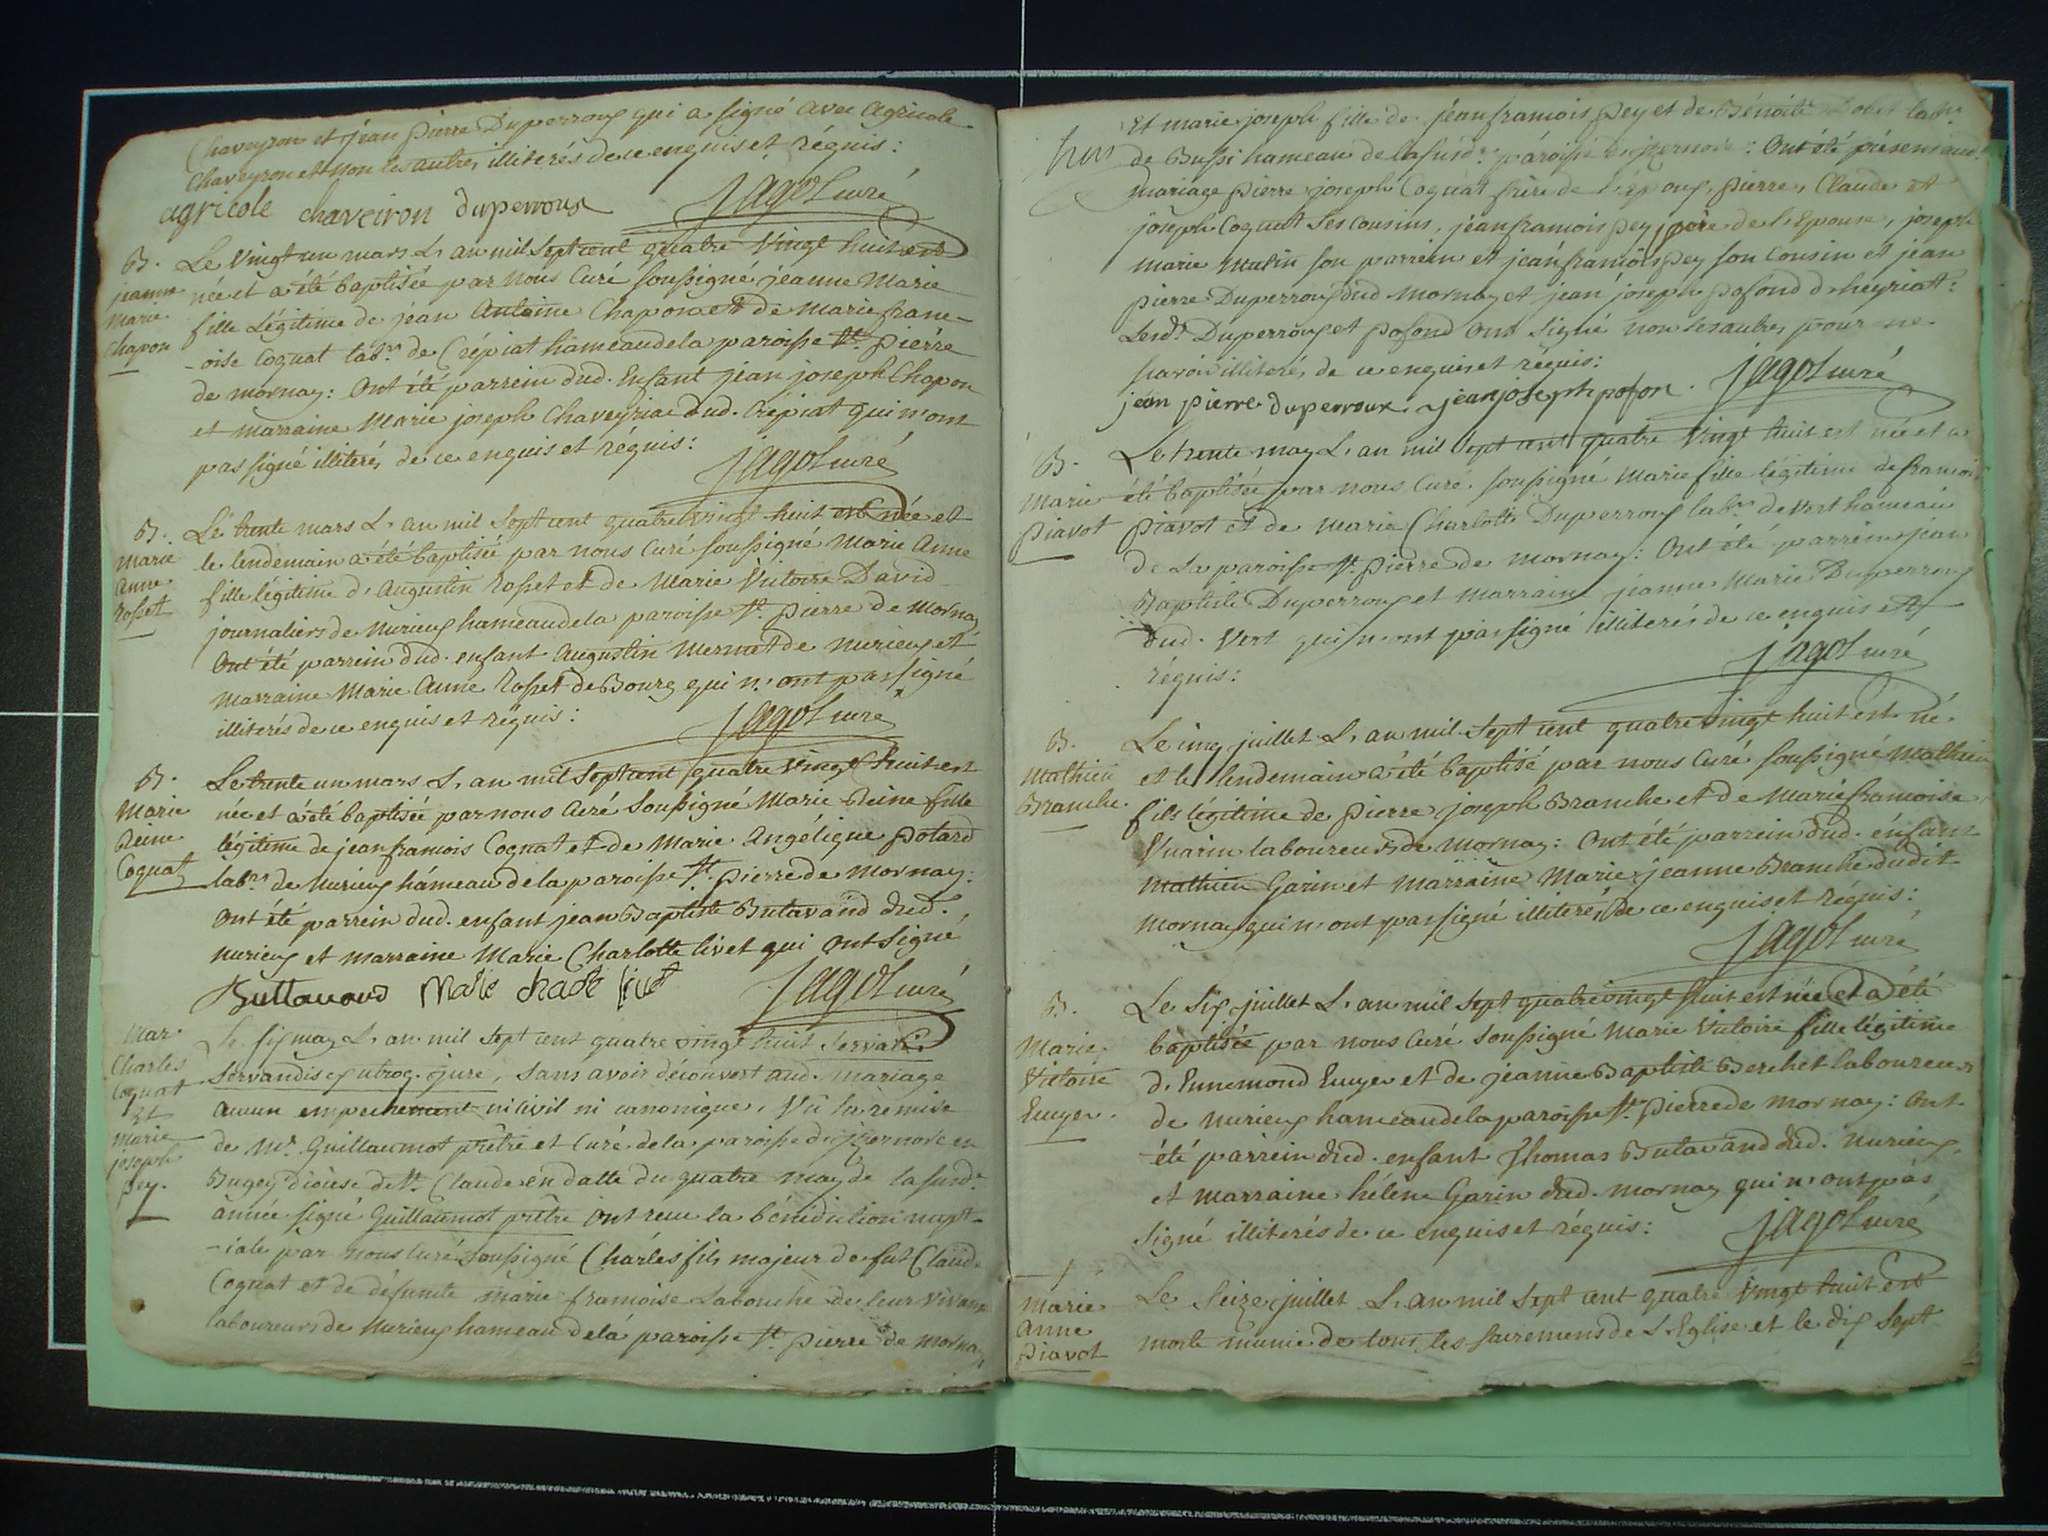 Chaveyron et jean pierre Duperroux qui a signé avec agricole
Chaveyron et non les autres illiterés de ce enquis et réquis:
agricole chaveiron duperroux jagot curé
B. jeanne Marie Chapon
Le vingt un mars L'an mil sept cent quatre vingt huit est
née et a été baptisée par nous Curé soussigné jeanne Marie
fille Légitime de jean Antoine Chapon et de Marie fran-
-oise Coquat labrs de Crépiat hameau de la paroisse St. pierre
de mornay: Ont été parrein dud. Enfant jean joseph Chapon
et marraine Marie joseph Chaveyriat dud. Crépiat qui n'ont
pas signé illiterés de ce enquis et réquis:
jagot curé
B. Marie Anne Rosset
Le trente mars L'an mil sept cent quatre vingt huit est née et
le lendemain a été baptisée par nous Curé soussigné Marie Anne
fille légitime d'Augustin Rosset et de Marie Victoire David
journaliers de Nurieux hameau de la paroisse St. pierre de Mornay
Ont été parrein dud. enfant Augustin Mermet de nurieux et
Marraine Marie Anne Rosset de Bourg qui n'ont pas signé
illiterés de ce enquis et réquis:
jagot curé
B. Marie Reine Coquat
Le trente un mars L'an mil sept cent quatre vingt huit est
née et a été baptisée par nous Curé soussigné Marie Reine fille
légitime de jean franiois Coquat et de Marie Angélique potard
labrs de Nurieux hameau de la paroisse St. pierre de Mornay:
Ont été parrein dud. enfant jean Baptiste Butavand dud.
nurieux et marraine Marie Charlotte livet qui ont signé
Buttavand Marie livet
jagot curé
Mar. Charles Coquat Et Marie joseph pey.
Le six may L'an mil sept cent quatre vingt huit servatis
servandis ex utroq. jure, sans avoir découvert aud. mariage
aucun empechement ni civil ni canonique, Vû la remise
de Mr. Guillaumot prêtre et Curé de la paroisse d'izernore en
Bugey diocèse de St. Claude en datte du quatre may de la susd.
année signé Guillaumot prêtre ont reçu la bénédiction nupt-
-iale par nous Curé soussigné Charles fils majeur de fut Claude
Coquat et de défunte marie françoise Labouche de leur vivant
laboureurs de Nurieux hameau de la paroisse St. pierre de mornay
Et marie joseph fille de jean franiois pey et de Bénoite labrs
de Bussi hameau de la susde. paroisse d'izernore: Ont été présens aud.
mariage pierre joseph Coquat frère de l'époux, pierre, Claude et
joseph Coquat ses cousins, jean franiois pey père de l'Epouse, joseph
marie Matin son parrein et jean franiois pey son cousin et jean
pierre Duperroux dud. Mornay et jean joseph pofond d'heyriat:
Lesds. Duperroux et pofond ont signé non les autres pour ne
savoir illiterés de ce enquis et réquis:
jean pierre duperroux. jean joseph pofon. jagot curé
B. Marie Piavot
Le trente may L'an mil sept cent quatre vingt huit est née et a
été baptisée par nous Curé soussigné Marie fille légitime de franiois
Piavot et de Marie Charlotte Duperroux labrs de Vert hameau
de la paroisse St. pierre de mornay: Ont été parrein jean
Baptiste Duperroux et Marraine jeanne Marie Duperroux
dud. Vert qui n'ont pas signé illiterés de ce enquis et
réquis:
jagot curé
B. Mathieu Branche.
Le cinq juillet L'an mil sept cent quatre vingt huit est né
et le lendemain a été baptisé par nous Curé soussigné Mathieu
fils légitime de pierre joseph Branche et de Marie franioise
Vuarin laboureurs de Mornay: Ont été parrein dud. énfant
Mathieu Garin et Marraine Marie jeanne Branche dudit
Mornay qui n'ont pas signé illiterés de ce enquis et réquis:
jagot curé
B. Marie Victoire Euyer.
Le six juillet L'an mil sept quatre vingt huit est née et a été
baptisée par nous Curé soussigné Marie Victoire fille légitime
d'Ennemond Euyer et de jeanne Baptiste Berchet laboureurs
de nurieux hameau de la paroisse St. pierre de mornay: Ont
été parrein dud. enfant Thomas Butavand dud. nurieux
et marraine hélène Garin dud. mornay qui n'ont pas
signé illiterés de ce enquis et réquis:
jagot curé
Marie Anne Piavot
Le Seize juillet L'an mil sept cent quatre vingt huit est
morte munie de tous les sacremens de L'Eglise et le dix sept